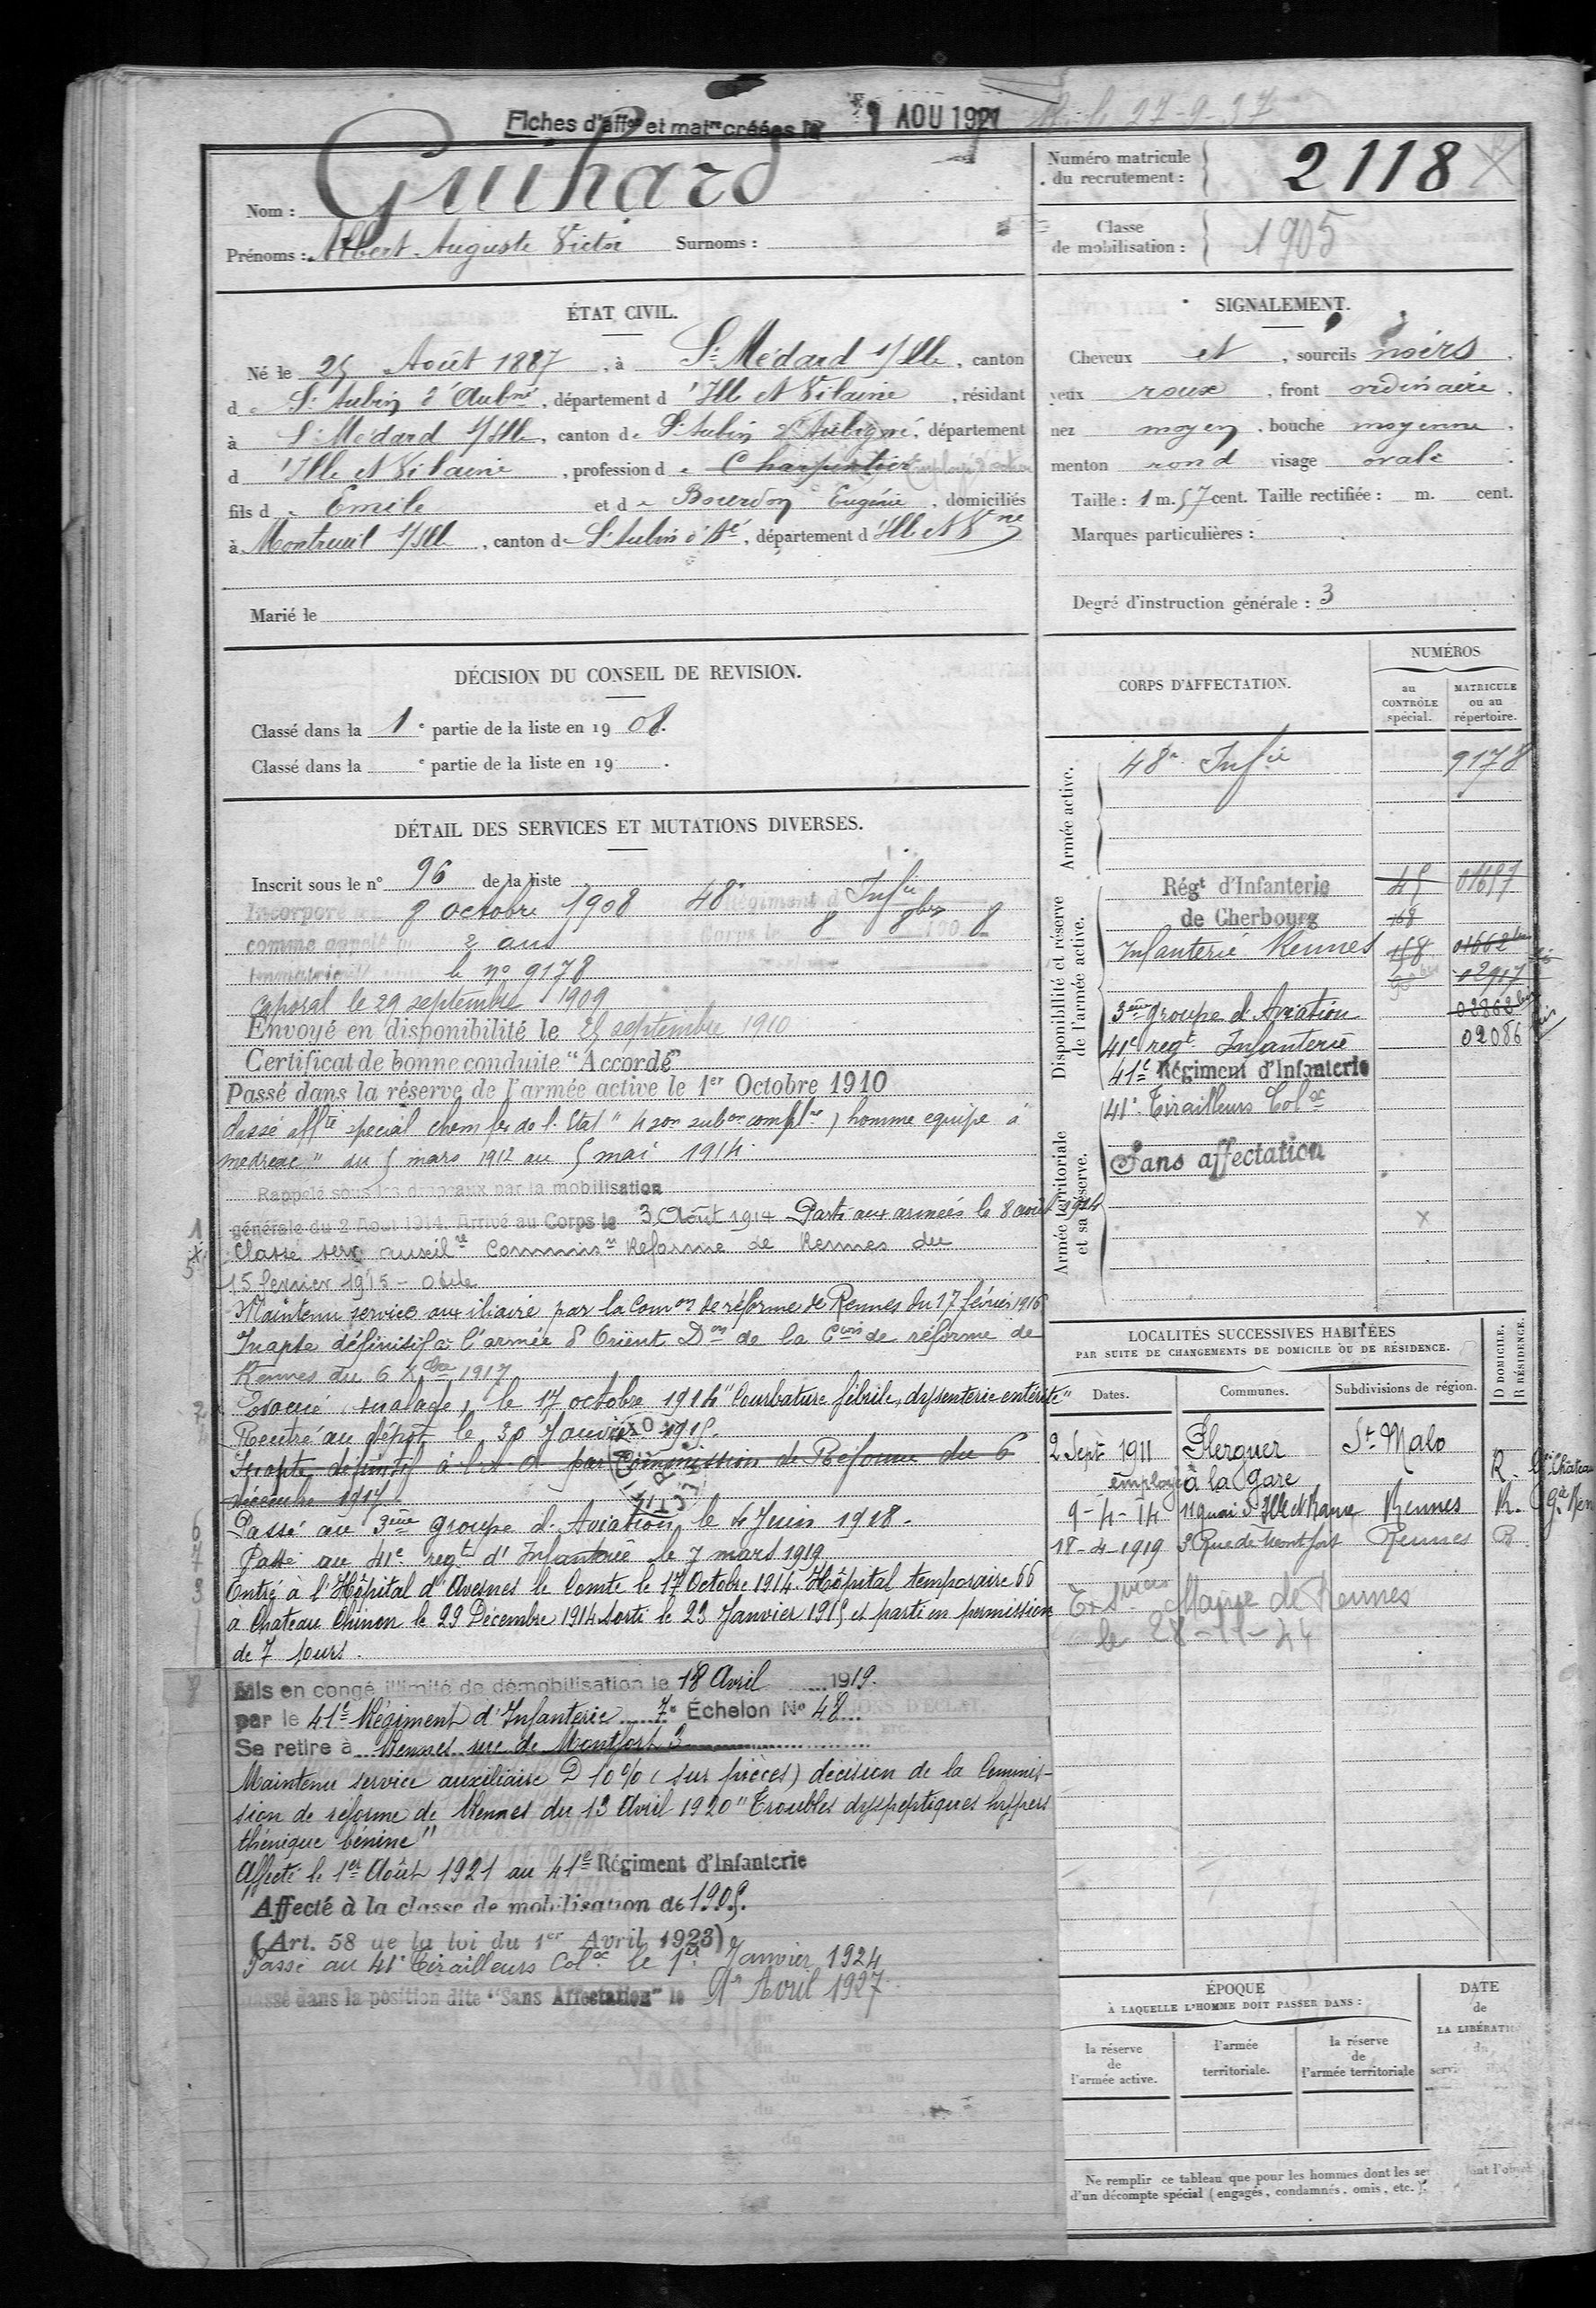 Fiches d'aff^on et mat^re créées le 1 AOU 1921
27-9-37
Nom : Guihard
Prénoms : Albert Auguste Victor Surnoms :
Numéro matricule du recrutement : 2118
Classe de mobilisation : 1905
ÉTAT CIVIL.
Né le 25 Août 1887, à St Médard s/Ille, canton
de St Aubin d'Aubné, département d'Ille et Vilaine, résidant
à St Médard s/Ille, canton de St Aubin d'Aubigné, département
d'Ille et Vilaine, profession de Charpentier
fils de Emile et de Bourdon Eugénie, domiciliés
à Montreuil s/Ille, canton de St Aubin d'A^é, département d'Ille et V^ne
Marié le
SIGNALEMENT.
Cheveux et, sourcils noirs,
yeux roux, front ordinaire,
nez moyen, bouche moyenne,
menton rond visage ovale.
Taille : 1 m. 57 cent. Taille rectifiée : m. cent.
Marques particulières :
Degré d'instruction générale : 3
DÉCISION DU CONSEIL DE REVISION.
Classé dans la 1e partie de la liste en 1908.
Classé dans la e partie de la liste en 19 .
DÉTAIL DES SERVICES ET MUTATIONS DIVERSES.
Inscrit sous le n° 96 de la liste
Incorporé 8 octobre 1908 48e Régiment d'Inf^ie
comme appelé 2 ans corps le 8 8bre 1908
le no 9178
Caporal le 29 septembre 1909
Envoyé en disponibilité le 25 septembre 1910
Certificat de bonne conduite "Accordé"
Passé dans la réserve de l'armée active le 1er Octobre 1910
Classé aff^té spécial chem fer de l'Etat " 4 son subon compl^re ) homme equipe à
medreac " du 5 mars 1912 au 5 mai 1914.
Rappelé sous les drapeaux par la mobilisation
générale du 2 Aout 1914. Arrivé au Corps le 3 Août 1914 Parti aux armées le 8 août 1914
Classé serv auxil^re Commis^on Réforme de Rennes du
15 fevrier 1915 -
Maintenu service auxiliaire par la Com^on de réforme de Rennes du 17 février 1916
Inapte définitif à l'armée d'Orient D^on de la C^ion de réforme de
Rennes du 6 X^bre 1917
Evacué (malade), le 17 octobre 1914 "Courbature fébrile, dysenterie entérite"
Rentré au dépôt le 30 Janvier 1915.
Inapte définitif à l'A. d par Commission de Réforme du 6
décembre 1917
Passé au 3eme groupe d'Aviation le 4 Juin 1918.
Passé au 41e reg^t d'Infanterie le 7 mars 1919
Entré à l'Hôpital d'Avesnes le Comte le 17 Octobre 1914. Hôpital temporaire 66
a Chateau Chinon le 29 Décembre 1914 Sorti le 23 Janvier 1915 et parti en permission
de 7 jours.
Mis en congé illimité de démobilisation le 18 Avril 1919.
par le 41e Régiment d'Infanterie 7e Échelon No 48
Se retire à Rennes rue de Montfort 3
Maintenu service auxiliaire D 10% (sur pièces) décision de la Commis-
sion de réforme de Rennes du 13 Avril 1920 "Troubles dyspeptiques hypers
thénique bénine"
Affecté le 1er Août 1921 au 41e Régiment d'Infanterie
Affecté à la classe de mobilisation de 1905.
(Art. 58 de la loi du 1er Avril 1923)
Passé au 41e Tirailleurs Col^x le 1er Janvier 1924
Passé dans la position dite "Sans Affectation" le 1er Avril 1927.
CORPS D'AFFECTATION.
NUMÉROS
au CONTRÔLE spécial.
MATRICULE ou au répertoire.
Armée active.
48e Inf^ie 9178
Disponibilité et réserve de l'armée active.
Rég^t d'Infanterie 45 01657
de Cherbourg 168
Infanterie Rennes 158 01662 bis
02917
3ème groupe d'Aviation 02868 bis
41e reg^t Infanterie 02086 bis
41e Régiment d'Infanterie
41e Tirailleurs Col^x
Armée territoriale et sa réserve.
Sans affectation
LOCALITÉS SUCCESSIVES HABITÉES
PAR SUITE DE CHANGEMENTS DE DOMICILE OU DE RÉSIDENCE.
Dates. Communes. Subdivisions de région. D DOMICILE. R RÉSIDENCE.
2 Sept 1911 Plerguer St. Malo R.
employé à la gare
9-4-14 11 quai d'Ille et Rance Rennes R.
18-4-1919 3 Rue de Montfort Rennes R
Mairie de Rennes
le 28-11-44
ÉPOQUE
À LAQUELLE L'HOMME DOIT PASSER DANS :
la réserve de l'armée active.
l'armée territoriale.
la réserve de l'armée territoriale
DATE de LA LIBÉRATI
Ne remplir ce tableau que pour les hommes dont les se
d'un décompte spécial (engagés, condamnés, omis, etc.).